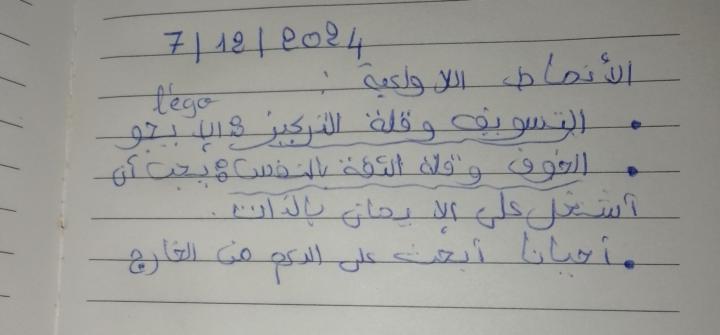 7/12/2024
الأنماط اللاواعية :
l'égo
• التسويف وقلة التركيز : الايجو
• الخوف وقلة الثقة بالنفس : يجب أن
أشتغل على الإيمان بالذات .
• أحيانا أبحث على الدعم من الخارج